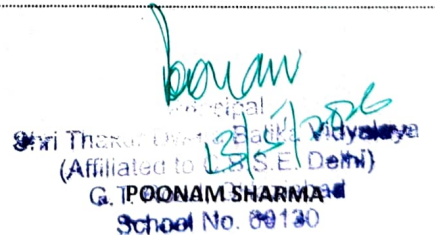 Poonam
Principal
Shri Thakur Balika Vidyalaya
13/5/2026
(Affiliated to C.B.S.E. Delhi)
G.T.
POONAM SHARMA
School No. 60130